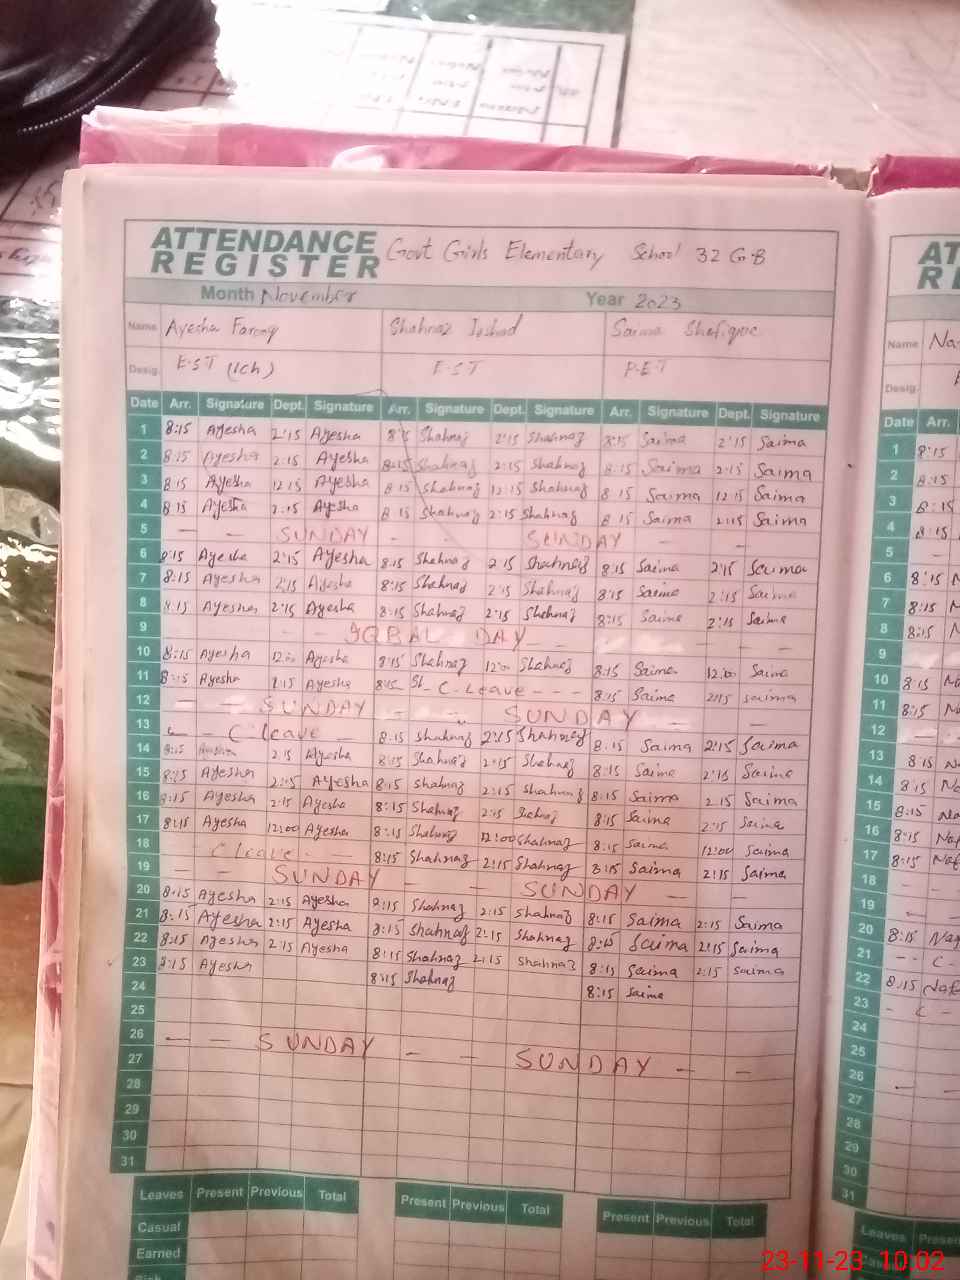 ATTENDANCE REGISTER Govt Girls Elementary School 32 G.B
Month November Year 2023
Name Ayesha Farooq Shahnaz Irshad Saima Shafique
Desig. E.S.T (Ich) E.S.T P.E.T
Date Arr. Signature Dept. Signature Arr. Signature Dept. Signature Arr. Signature Dept. Signature
1 8:15 Ayesha 2:15 Ayesha 8:15 Shahnaz 2:15 Shahnaz 8:15 Saima 2:15 Saima
2 8:15 Ayesha 2:15 Ayesha 8:15 Shahnaz 2:15 Shahnaz 8:15 Saima 2:15 Saima
3 8:15 Ayesha 12:15 Ayesha 8:15 Shahnaz 12:15 Shahnaz 8:15 Saima 12:15 Saima
4 8:15 Ayesha 2:15 Ayesha 8:15 Shahnaz 2:15 Shahnaz 8:15 Saima 2:15 Saima
5 — SUNDAY - - SUNDAY - -
6 8:15 Ayesha 2:15 Ayesha 8:15 Shahnaz 2:15 Shahnaz 8:15 Saima 2:15 Saima
7 8:15 Ayesha 2:15 Ayesha 8:15 Shahnaz 2:15 Shahnaz 8:15 Saima 2:15 Saima
8 8:15 Ayesha 2:15 Ayesha 8:15 Shahnaz 2:15 Shahnaz 8:15 Saima 2:15 Saima
9 - - IQBAL DAY - - - -
10 8:15 Ayesha 12:00 Ayesha 8:15 Shahnaz 12:00 Shahnaz 8:15 Saima 12:00 Saima
11 8:15 Ayesha 2:15 Ayesha 8:15 Sh- C. Leave - - - 8:15 Saima 2:15 Saima
12 - - SUNDAY - - SUNDAY - -
13 - - C. leave - 8:15 Shahnaz 2:15 Shahnaz 8:15 Saima 2:15 Saima
14 8:15 Ayesha 2:15 Ayesha 8:15 Shahnaz 2:15 Shahnaz 8:15 Saima 2:15 Saima
15 8:15 Ayesha 2:15 Ayesha 8:15 Shahnaz 2:15 Shahnaz 8:15 Saima 2:15 Saima
16 8:15 Ayesha 2:15 Ayesha 8:15 Shahnaz 2:15 Shahnaz 8:15 Saima 2:15 Saima
17 8:15 Ayesha 12:00 Ayesha 8:15 Shahnaz 12:00 Shahnaz 8:15 Saima 12:00 Saima
18 C leave - - 8:15 Shahnaz 2:15 Shahnaz 8:15 Saima 2:15 Saima
19 - - SUNDAY - - SUNDAY - -
20 8:15 Ayesha 2:15 Ayesha 8:15 Shahnaz 2:15 Shahnaz 8:15 Saima 2:15 Saima
21 8:15 Ayesha 2:15 Ayesha 8:15 Shahnaz 2:15 Shahnaz 8:15 Saima 2:15 Saima
22 8:15 Ayesha 2:15 Ayesha 8:15 Shahnaz 2:15 Shahnaz 8:15 Saima 2:15 Saima
23 8:15 Ayesha 8:15 Shahnaz 8:15 Saima
24
25
26 — - SUNDAY - - SUNDAY - -
27
28
29
30
31
Leaves Present Previous Total Present Previous Total Present Previous Total
Casual
Earned
Name
Desig.
Date Arr.
1 8:15
2 8:15
3 8:15
4 8:15
5 -
6 8:15
7 8:15
8 8:15
9
10 8:15
11 8:15
12
13 8:15
14 8:15
15 8:15
16 8:15
17 8:15
18
19
20 8:15
21 - - C -
22 8:15
23 - C -
24
25
26
27
28
29
30
31
Leaves
23-11-23 10:02